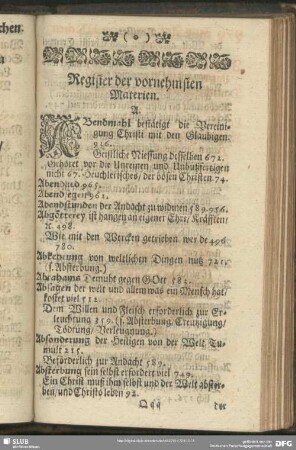 chen.
( o )
Register der vornehmsten
Materien.
A.
ABendmahl bestätigt die Vereini-
gung Christi mit den Glaubigen.
916.
Geistliche Niessung desselben 672.
Gehöret vor die Unreinen und Unbußfertigen
nicht 67. Heuchlerisches, der bösen Christen 74.
Abendlied 965.
Abendsegen 961.
Abendstunden der Andacht zu widmen 589. 956.
Abgötterey ist hangen an eigener Ehr, Kräfften/
ꝛc. 498.
Wie mit den Wercken getrieben werde 496
780.
Abkehrung von weltlichen Dingen nutz 721.
(s. Absterbung.)
Abrahams Demuht gegen GOtt 182.
Absagen der welt und allem was ein Mensch hat/
kostet viel 512.
Dem Willen und Fleisch erforderlich zur Er-
leuchtung 350. (s. Absterbung, Creutzigung/
Tödtung/ Verleugnung.)
Absonderung der Heiligen von der Welt Tu-
mult 215.
Beförderlich zur Andacht 589.
Absterbung sein selbst erfordert viel 749.
Ein Christ muß ihm selbst und der Welt abster-
ben, und Christo leben 92.
Qqq
SLUB